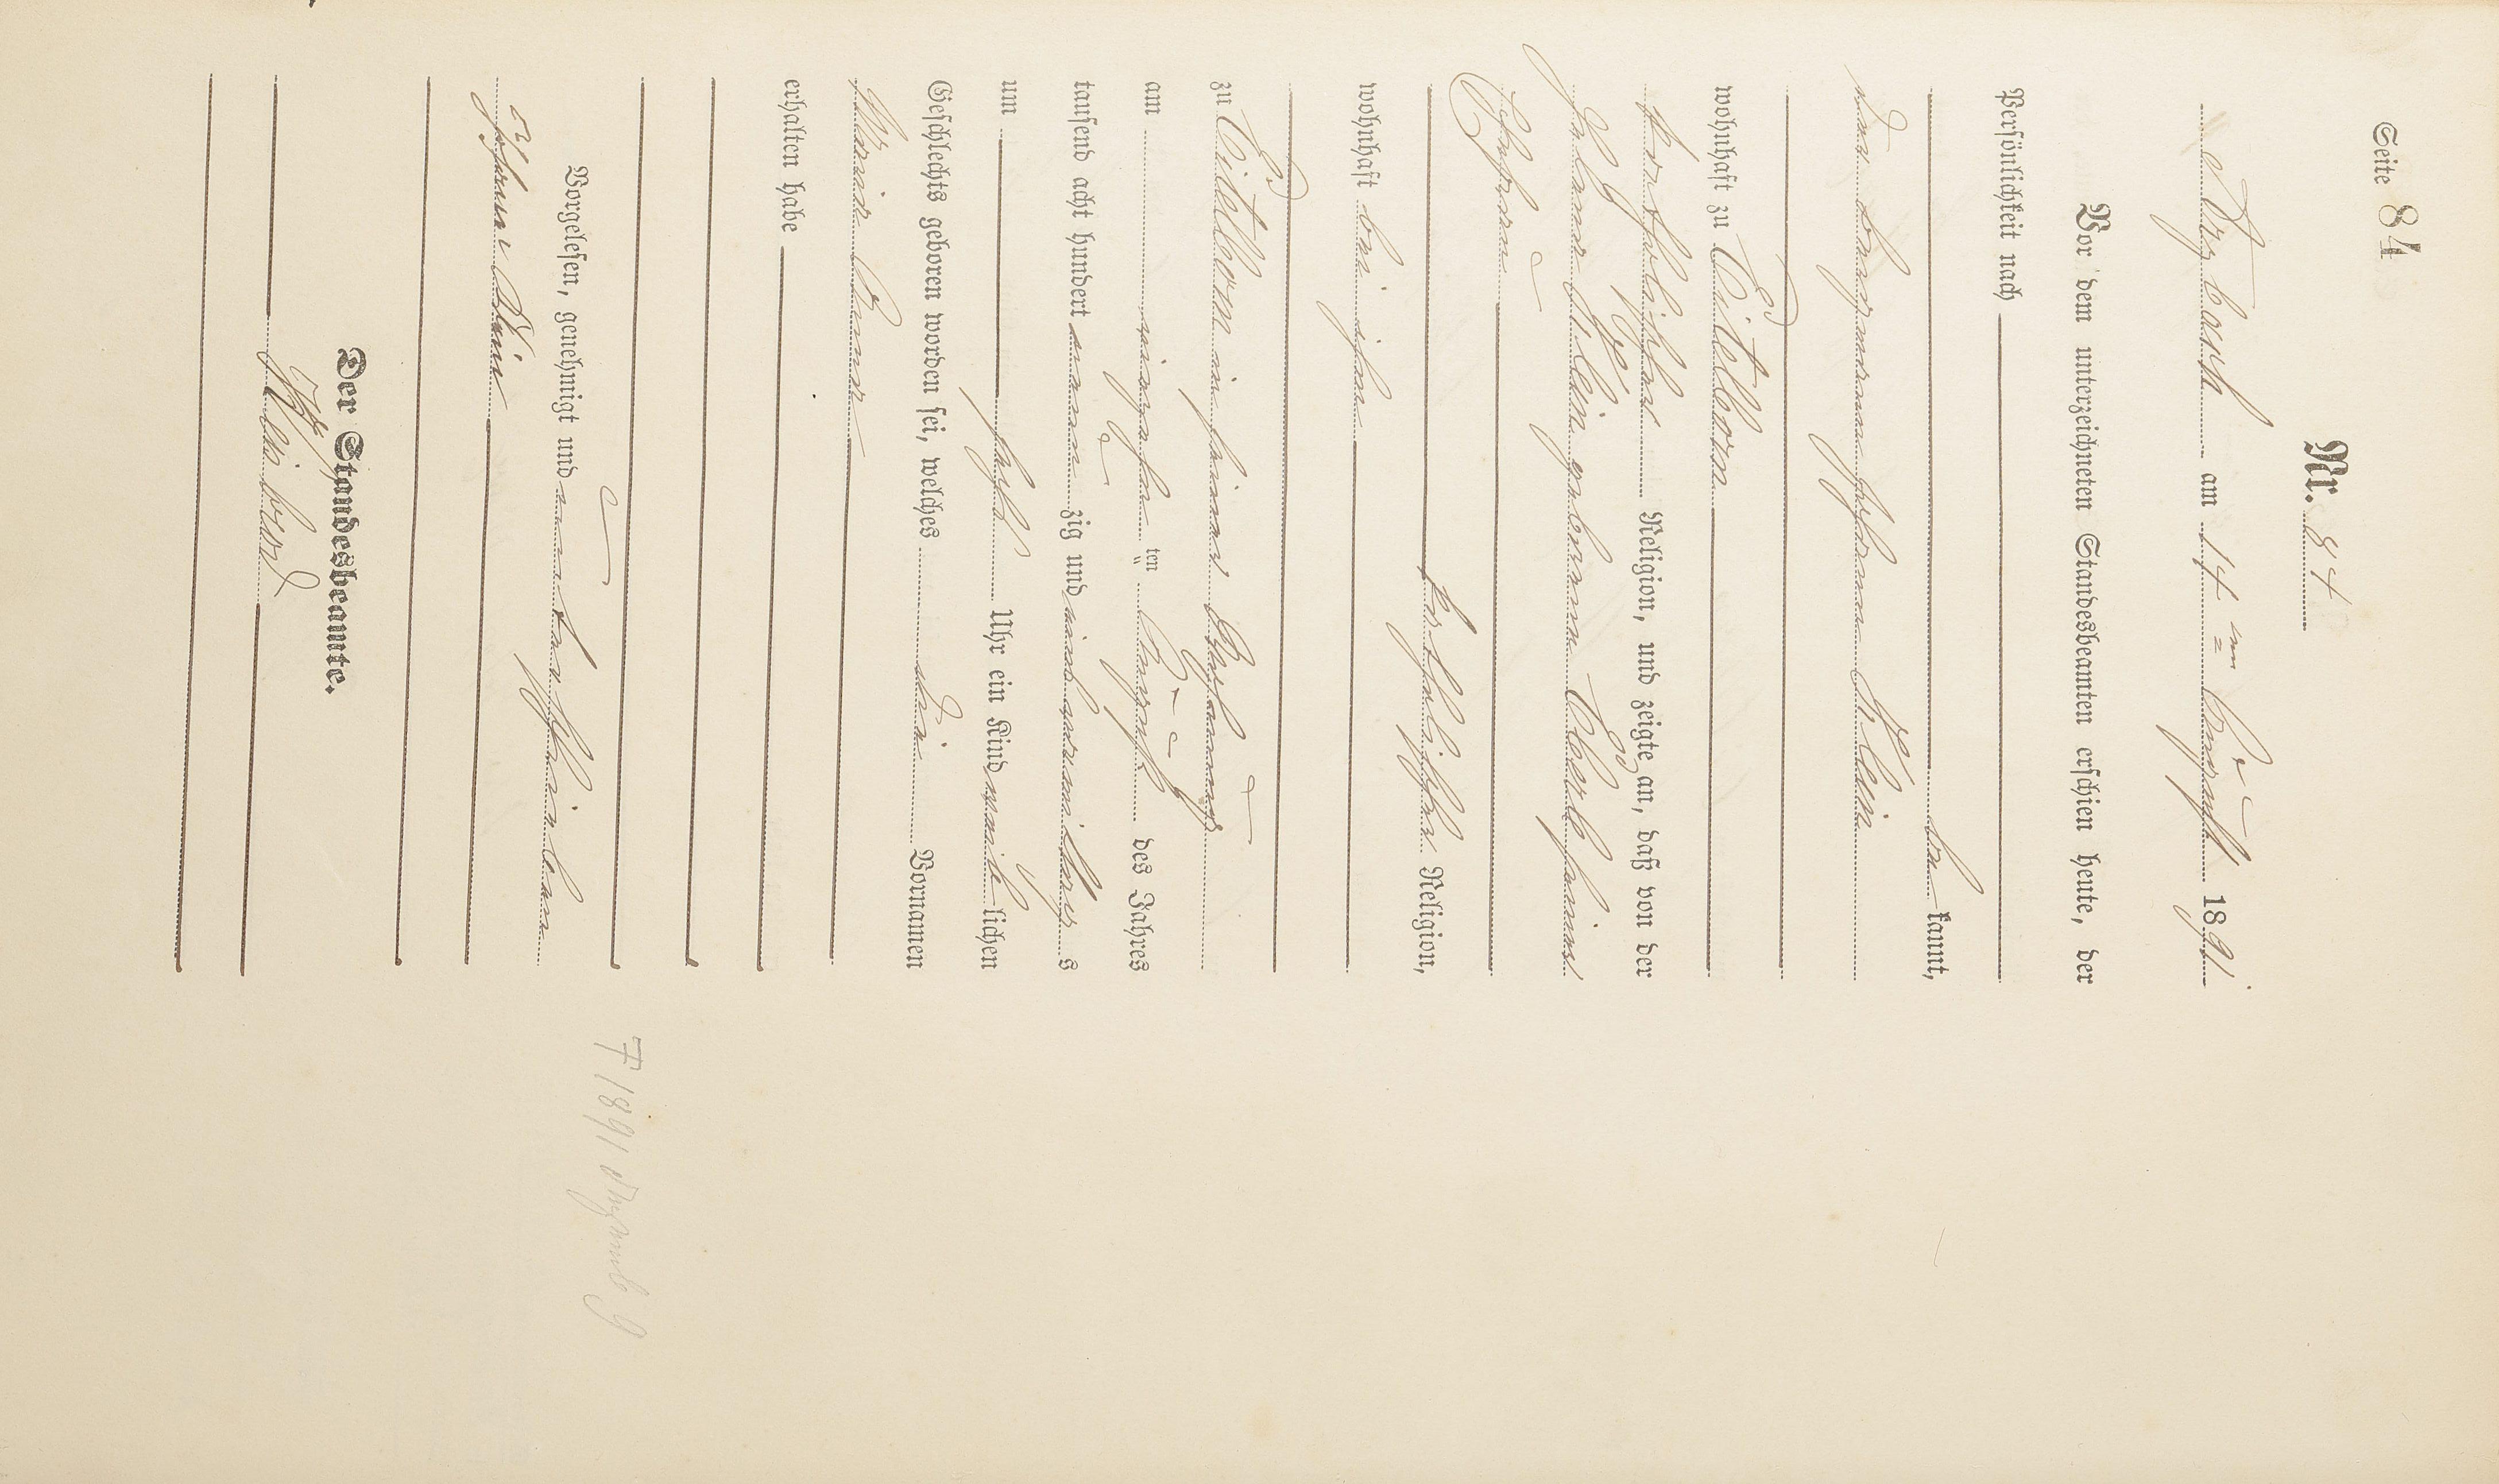 Seite 84
Nr. 84
Arzbach am 14ten August 1891.
Vor dem unterzeichneten Standesbeamten erschien heute, der
Persönlichkeit nach
be kannt,
der Bergmann Johann Klein
wohnhaft zu Eitelborn
katholischer Religion, und zeigte an, daß von der
Helena Klein geborenen Eberl seiner
Ehefrau
katholischer Religion,
wohnhaft bei ihm
zu Eitelborn in seiner Behausung
am ten August des Jahres
tausend acht hundert neun zig und eins s
um Uhr ein Kind weib lichen
Geschlechts geboren worden sei, welches die Vornamen
Maria Anna
erhalten habe
Vorgelesen, genehmigt und unterschrieben
Johann Klein
Der Standesbeamte.
† 1891 Dezemb 9